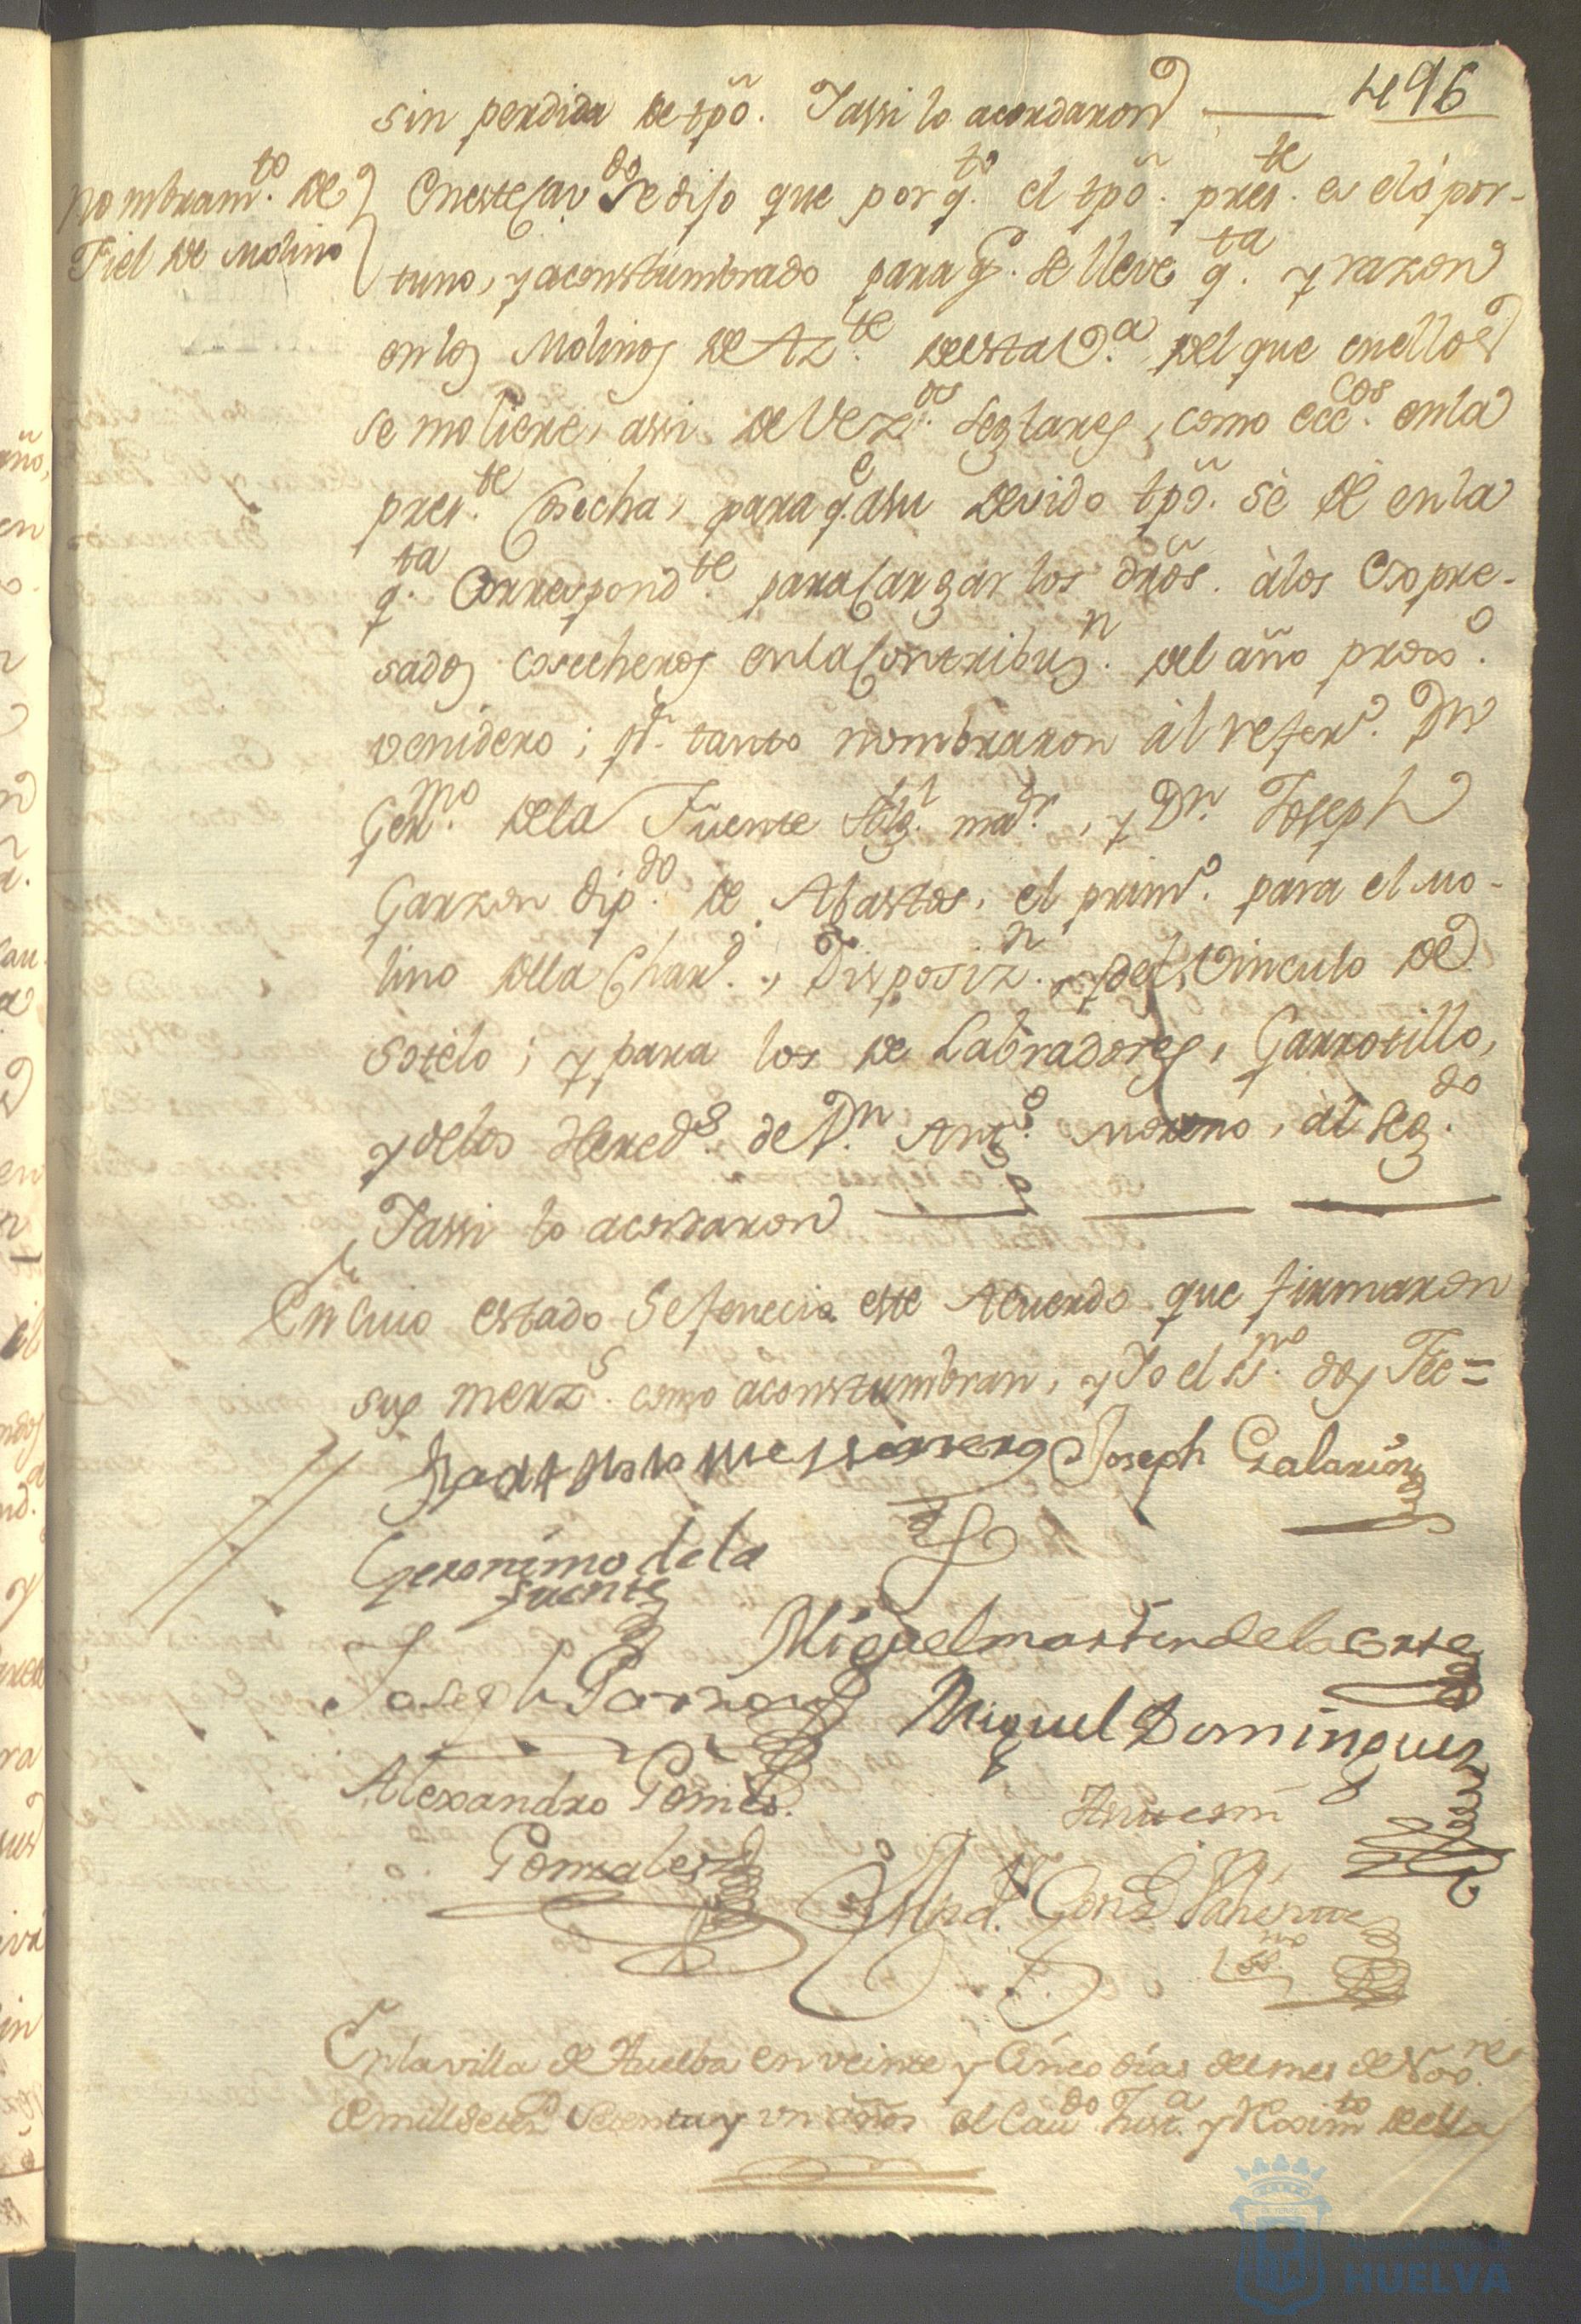 496
sin perdida de tpõ. Y assi lo acordaron
Nombram.to de
Fiel de Molino
En este Cav.do Se dijo que por q.to el tpõ. pres.te es el opor-
tuno, y aconstumbrado para q.e se lleve q.ta y razon
en los Molinos de Az.te de esta V.a del que en ellos
se moliere, assi de Vez.os Seglares, como ecc.cos en la
pres.te Cosecha, para q.e a su devido tpõ. se dé en la
q.ta Correspond.te para Cargar los dr̃os. à los Expre-
sados Cosecheros en la Contribuz.n del año prox.o
venidero; p.r tanto nombraron àl refer.o D.n
Ger.mo de la Fuente Alg.l ma.r, y D.n Joseph
Garzon dip.do de Abastos, el prim.o para el Mo-
lino de la Char.d, Disposiz.n, y del Vinculo de
Sotelo; y para los de Labradores, Garrotillo,
y de los Hered.s de D.n Ant.o Moreno, al Seg.do
Y assi lo acordaron
En Cuio estado Se fenecio este Acuerdo que firmaron
sus merz.s como aconstumbran, y Yo el ss.no doy Fee =
Joseph Galarion
Geronimo de la
Fuente
Miguel martin de la corte
Joseph Garzon
Miguel Dominguez
Alexandro Gomez
Gonzalez
Ante mi
Gonz.
ss.no
En la villa de Huelba en veinte y Cinco dias del mes de Nov.re
de mill setez.s Setenta y un años el Cav.do Just.a y Reximt.o de ella
HUELVA